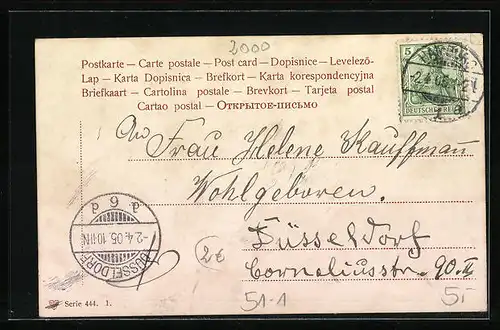 2000
Postkarte — Carte postale — Post card — Dopisnice — Levelező-
Lap — Karta Dopisnica — Brefkort — Karta korespondencyjna
Briefkaart — Cartolina postale — Brevkort — Tarjeta postal
Cartao postal — Открытое-письмо
5
DEUTSCHES REICH
An
Frau Helene Kauffman
Wohlgeboren.
Düsseldorf
Corneliusstr. 90. II
DÜSSELDORF
-2.4.05.10-11N.
d 6 d
2€
51-1
5,-
Serie 444. 1.